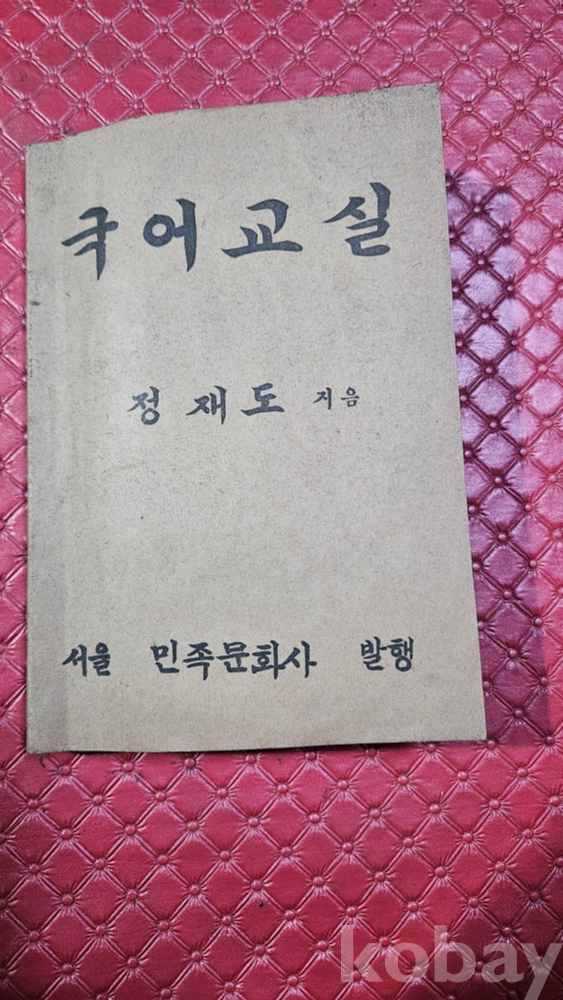 국어교실
정재도 지음
서울 민족문화사 발행
kobay